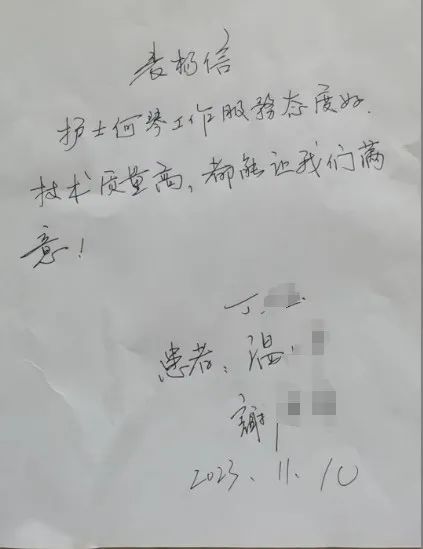 表扬信
护士何琴工作服务态度好.
技术质量高，都能让我们满
意！
患者：温
谢
2023.11.10